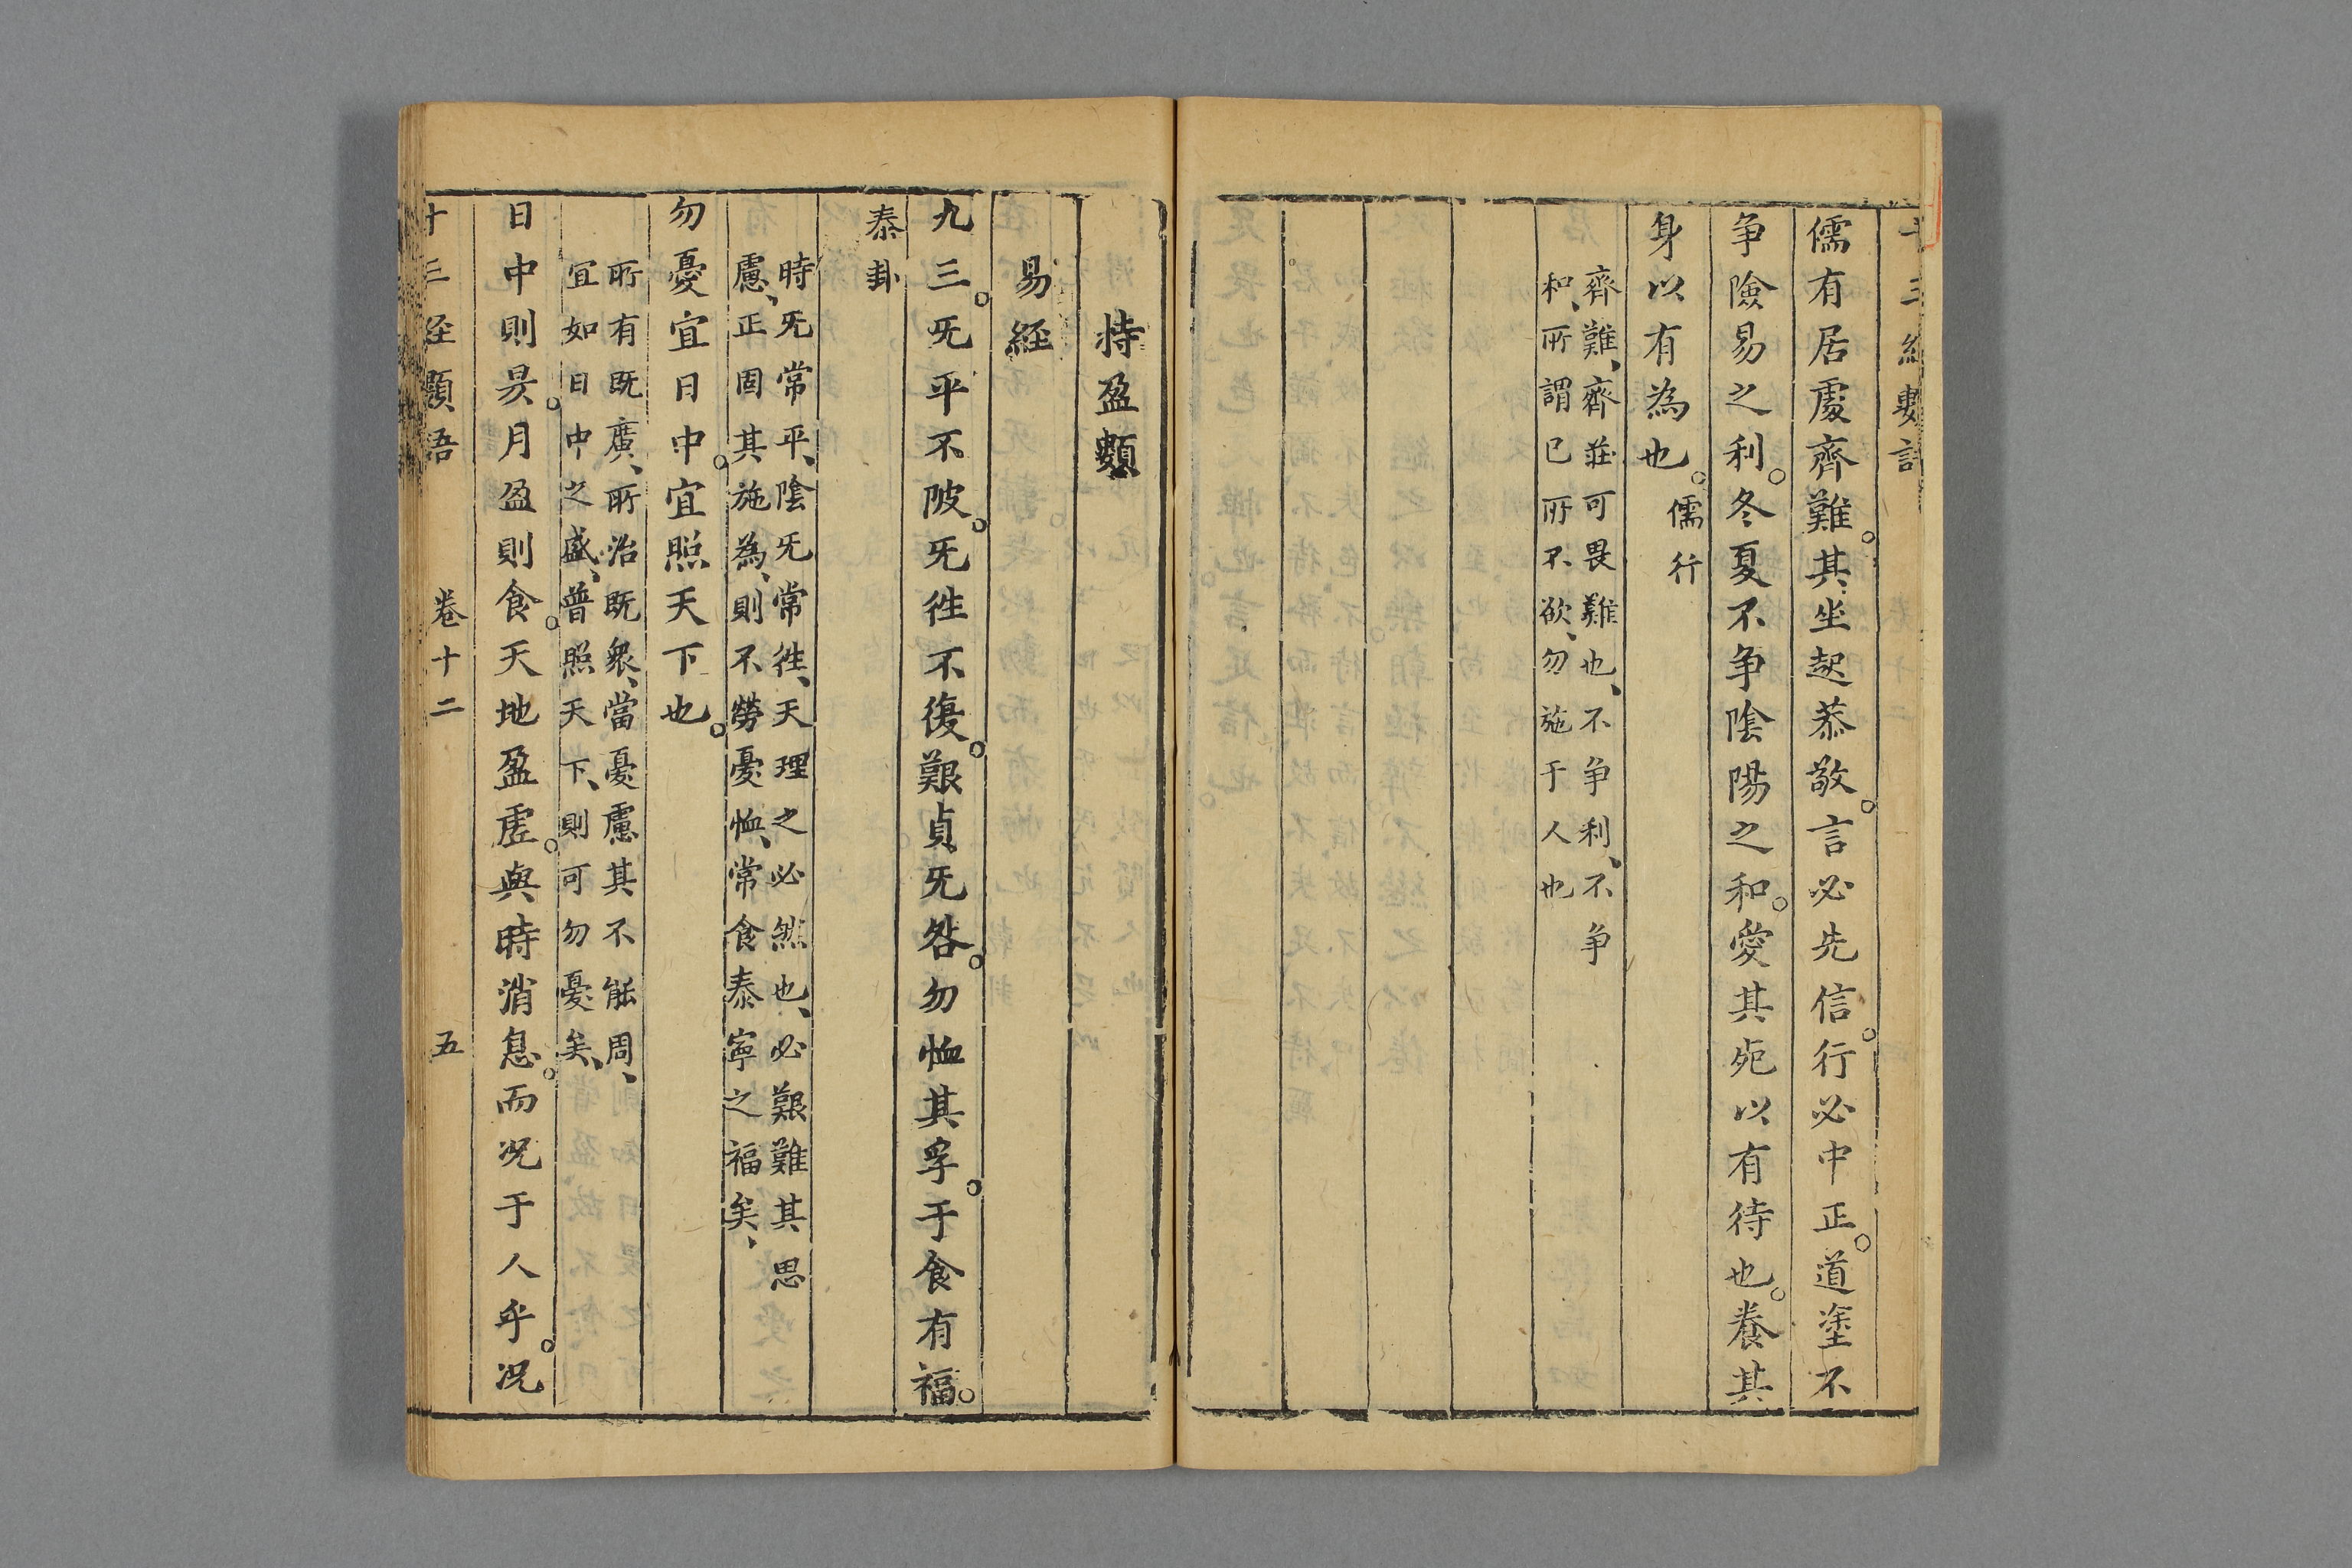 儒有居處齊難。其坐起恭敬。言必先信。行必中正。道塗不
争險易之利。冬夏不争陰陽之和。愛其死以有待也。養其
身以有為也。儒行
齊難、齊莊可畏難也、不争利、不争
和、所謂已所不欲、勿施于人也
持盈類
易經
九三。旡平不陂。旡徃不復。艱貞旡咎。勿恤其孚。于食有福。
泰卦
時旡常平、陰旡常徃、天理之必然也、必艱難其思
慮、正固其施為、則不勞憂恤、常食泰寧之福矣、
勿憂宜日中。宜照天下也。
所有既廣、所治既衆、當憂慮其不能周、
宜如日中之盛、普照天下、則可勿憂矣、
日中則昃。月盈則食。天地盈虛。與時消息。而况于人乎。况
十三经類语 卷十二 五